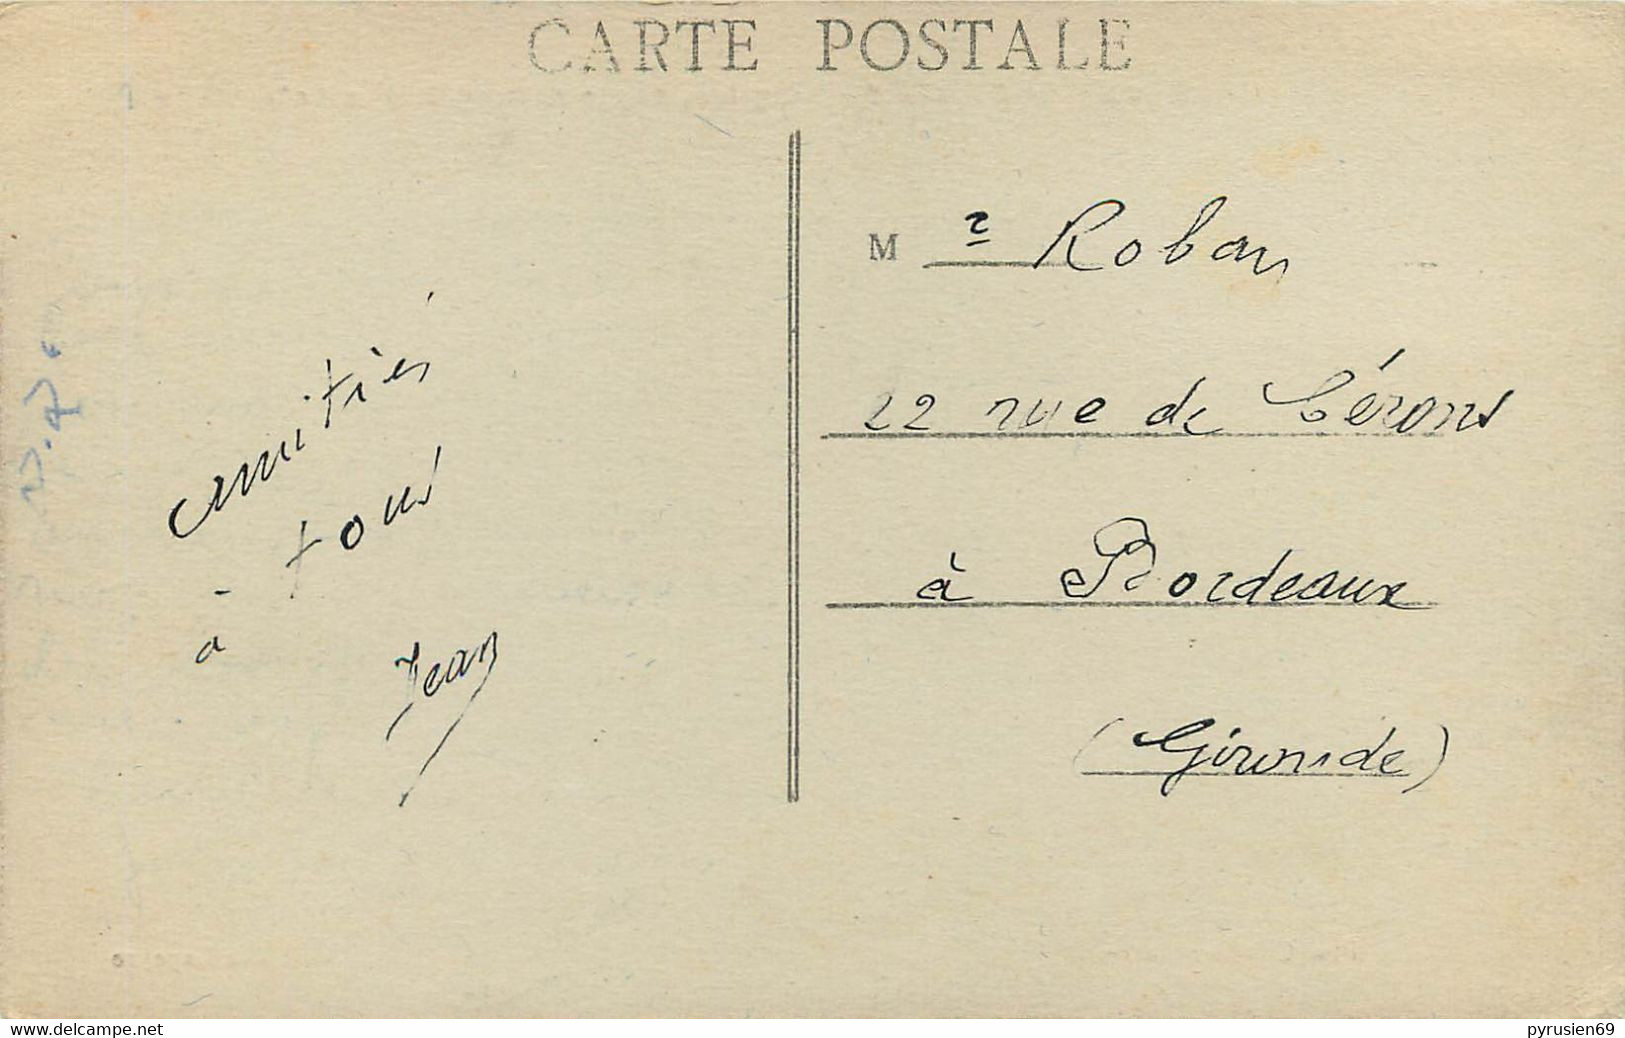 CARTE POSTALE
amitiés
à tous
Jean
Mr Roban
22 rue de Cérons
à Bordeaux
(Gironde)
www.delcampe.net
pyrusien69